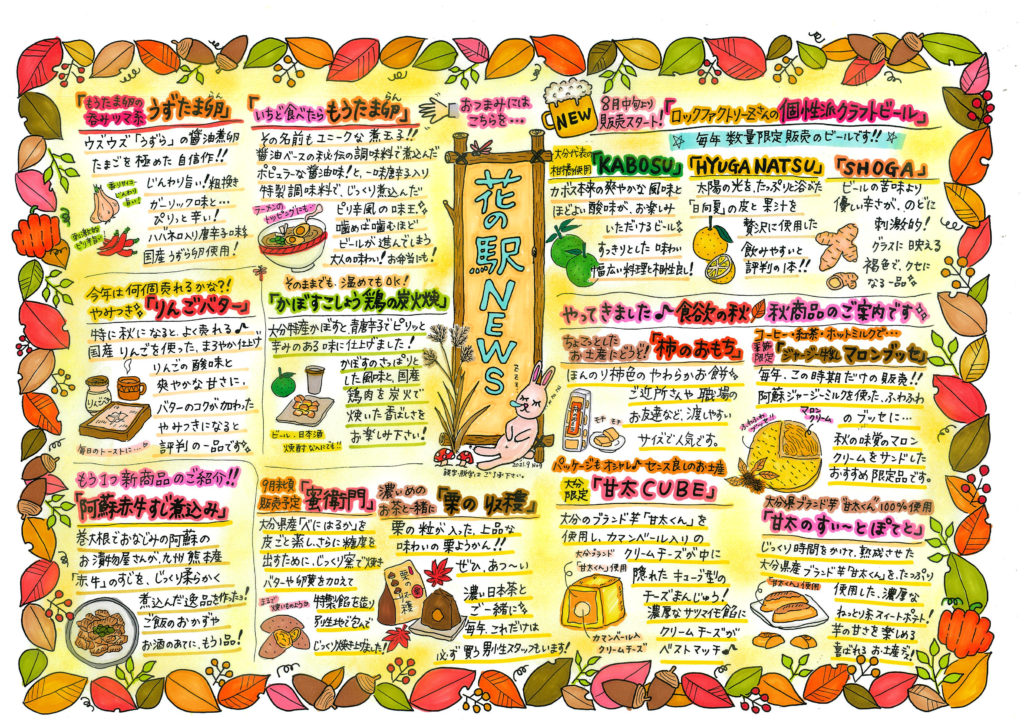 「もうたま卵の
呑サツマ系
うずたま卵」
らん
ウズウズ「うずら」の醤油煮卵
たまごを極めた自信作!!
じんわり旨い!粗挽き
ガーリック味と…
ぴりっと辛い!
ハバネロ入り唐辛子の味を
国産うずら卵使用!
香りサイコー
じんわり
旨い!
刺激的!
ピリ辛旨い
「いちど食べたら もうたま卵」
らん
その名前もユニークな煮玉子!!
醤油ベースの秘伝の調味料で煮込んだ
ポピュラーな醤油味!と、一味唐辛子入り
特製調味料で、じっくり煮込んだ
ピリ辛風の味玉。
噛めば噛むほど
ビールが進んでしまう
大人の味わい!お弁当にも!
ラーメンの
トッピングにも…
おつまみには
こちらを…
花の駅NEWS
2021.9 No9
NEW
8月中旬より
販売スタート!
「ロックファクトリーZさんの個性派クラフトビール」
☆毎年数量限定販売のビールです!!☆
大分代表の
柑橘使用
「KABOSU」
カボス本来の爽やかな風味と
ほどよい酸味が、お楽しみ
いただけるビール。
すっきりとした味わい
幅広い料理と相性良し!
「HYUGANATSU」
太陽の光を、たっぷりと浴びた
「日向夏」の皮と果汁を
贅沢に使用した
飲みやすいと
評判の1本!!
「SHOGA」
ビールの苦味より
優しい辛さが、のどに
刺激的!
グラスに映える
褐色で、クセに
なる一品。
今年は何個売れるかな?!
やみつき「りんごバター」
特に秋になると、よく売れる♪
国産りんごを使った、まろやか仕上げ
りんごの酸味と
爽やかな甘さに、
バターのコクが加わった
やみつきになると
評判の一品です。
りんごバター
毎日のトーストに…
そのままでも、温めてもOK!
「かぼすこしょう鶏の炭火焼」
大分特産かぼすと青唐辛子でピリッと
辛みのある味に仕上げました!
かぼすのさっぱりと
した風味と、国産
鶏肉を炭火で
焼いた香ばしさを
お楽しみ下さい!
ビール・日本酒
焼酎なんにでも!!
やってきました♪食欲の秋 秋商品のご案内です
ちょこっとした
お土産にどうぞ!「柿のおもち」
ほんのり柿色のやわらかお餅
ご近所さんや職場の
お友達など、渡しやすい
サイズで人気です。
モチ モチ
パッケージもオシャレ♪センス良しのお土産
コーヒー・紅茶・ホットミルクで…
季節
限定
「ジャージー牛乳マロンブッセ」
毎年、この時期だけの販売!!
阿蘇ジャージーミルクを使った、ふわふわ
のブッセに…
秋の味覚のマロン
クリームをサンドした
おすすめ限定品です。
ふわふわ
ブッセ
マロン
クリーム
もう1つ新商品のご紹介!!
「阿蘇赤牛すじ煮込み」
巻大根でおなじみの阿蘇の
お漬物屋さんが、九州熊本産
「赤牛」のすじを、じっくり柔らかく
煮込んだ逸品を作ったヨ!
ご飯のおかずや
お酒のあてに、もう1品!
9月秋頃
販売予定
「蜜衛門」
大分県産「べにはるか」を
皮ごと蒸し、さらに糖度を
出すために、じっくり窯で焼き
バターや卵黄を加えて
特製餡を造り
芋生地で包んで
じっくり焼き上げました!
まるで
焼いものようね
濃いめの
お茶と一緒に「栗の収穫」
栗の粒が入った、上品な
味わいの栗ようかん!!
ぜひ、あつ〜い
濃い日本茶と
ご一緒に
毎年、これだけは
必ず買う男性スタッフもいます!
栗の収穫
大分
限定
「甘太CUBE」
大分のブランド芋「甘太くん」を
使用し、カマンベール入りの
クリームチーズが中に
隠れたキューブ型の
チーズまんじゅう!
濃厚なサツマ芋餡に
クリームチーズが
ベストマッチ♪
大分ブランド
「甘太くん」使用
カマンベール入
クリームチーズ
大分県ブランド芋“甘太くん”100%使用
「甘太のすい〜とぽてと」
じっくり時間をかけて、熟成させた
大分県産ブランド芋「甘太くん」を、たっぷり
使用した、濃厚な
ねっとり系スイートポテト!
芋の甘さを楽しめる
喜ばれるお土産ダヨ!
“甘太くん”使用